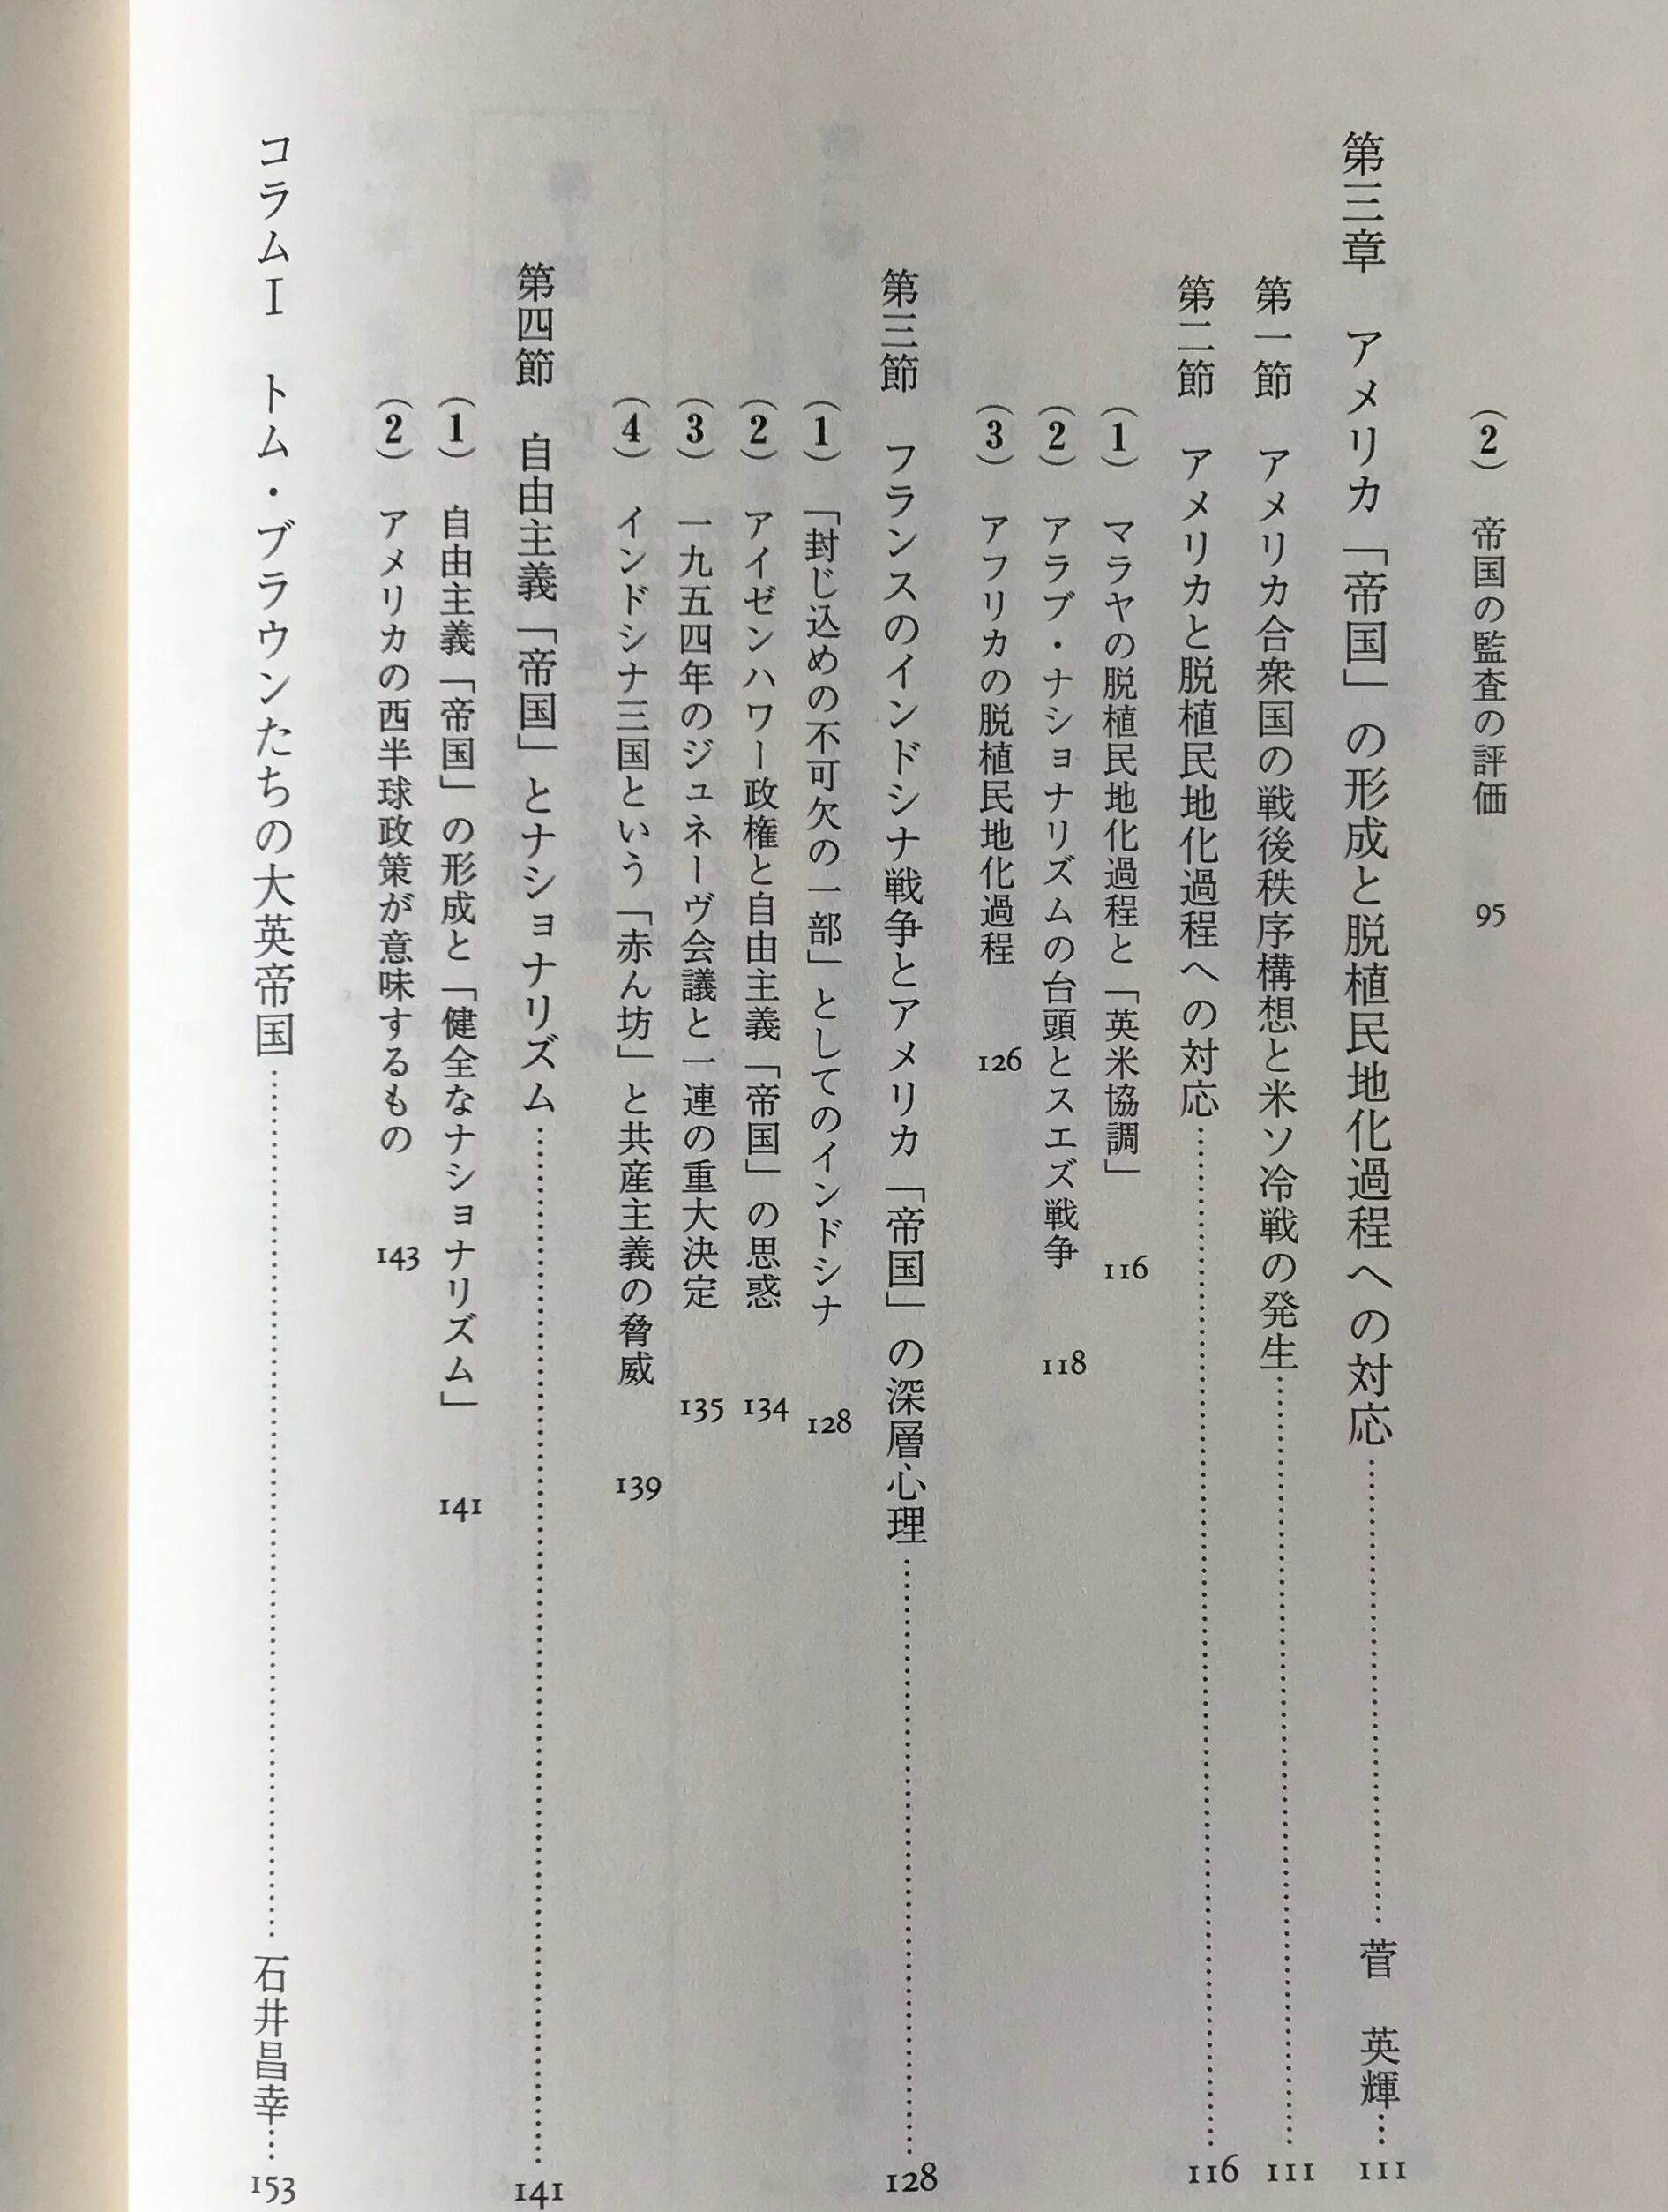 (2) 帝国の監査の評価 95
第三章 アメリカ「帝国」の形成と脱植民地化過程への対応…………菅 英輝…111
第一節 アメリカ合衆国の戦後秩序構想と米ソ冷戦の発生…………111
第二節 アメリカと脱植民地化過程への対応…………116
(1) マラヤの脱植民地化過程と「英米協調」 116
(2) アラブ・ナショナリズムの台頭とスエズ戦争 118
(3) アフリカの脱植民地化過程 126
第三節 フランスのインドシナ戦争とアメリカ「帝国」の深層心理…………128
(1) 「封じ込めの不可欠の一部」としてのインドシナ 128
(2) アイゼンハワー政権と自由主義「帝国」の思惑 134
(3) 一九五四年のジュネーヴ会議と一連の重大決定 135
(4) インドシナ三国という「赤ん坊」と共産主義の脅威 139
第四節 自由主義「帝国」とナショナリズム…………141
(1) 自由主義「帝国」の形成と「健全なナショナリズム」 141
(2) アメリカの西半球政策が意味するもの 143
コラムI トム・ブラウンたちの大英帝国…………石井昌幸…153